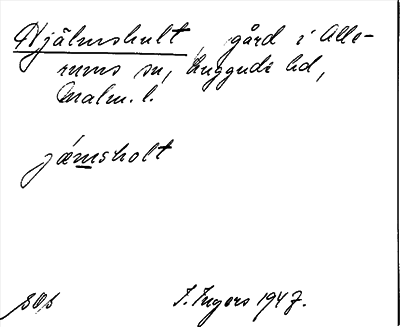 Hjälmshult, gård i Alle-
rums sn, Luggude hd,
Malm. l.
jæmsholt
I. Ingers 1947.